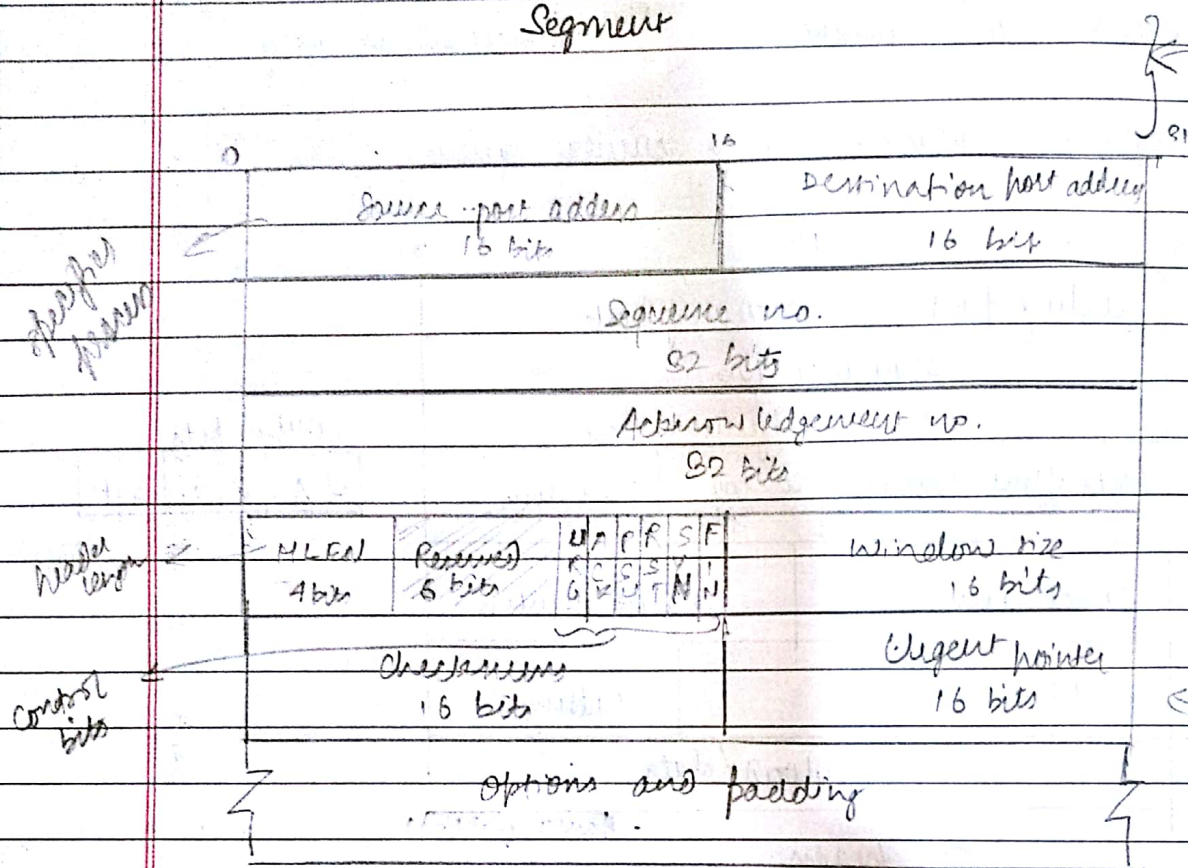 Segment
0 16 31
Source port address
16 bits
Destination port address
16 bit
specifies
process
Sequence no.
32 bits
Acknowledgement no.
32 bits
Header
length
HLEN
4 bits
Reserved
6 bits
URG ACK PSH RST SYN FIN
Window size
16 bits
control
bits
Checksum
16 bits
Urgent pointer
16 bits
Options and padding